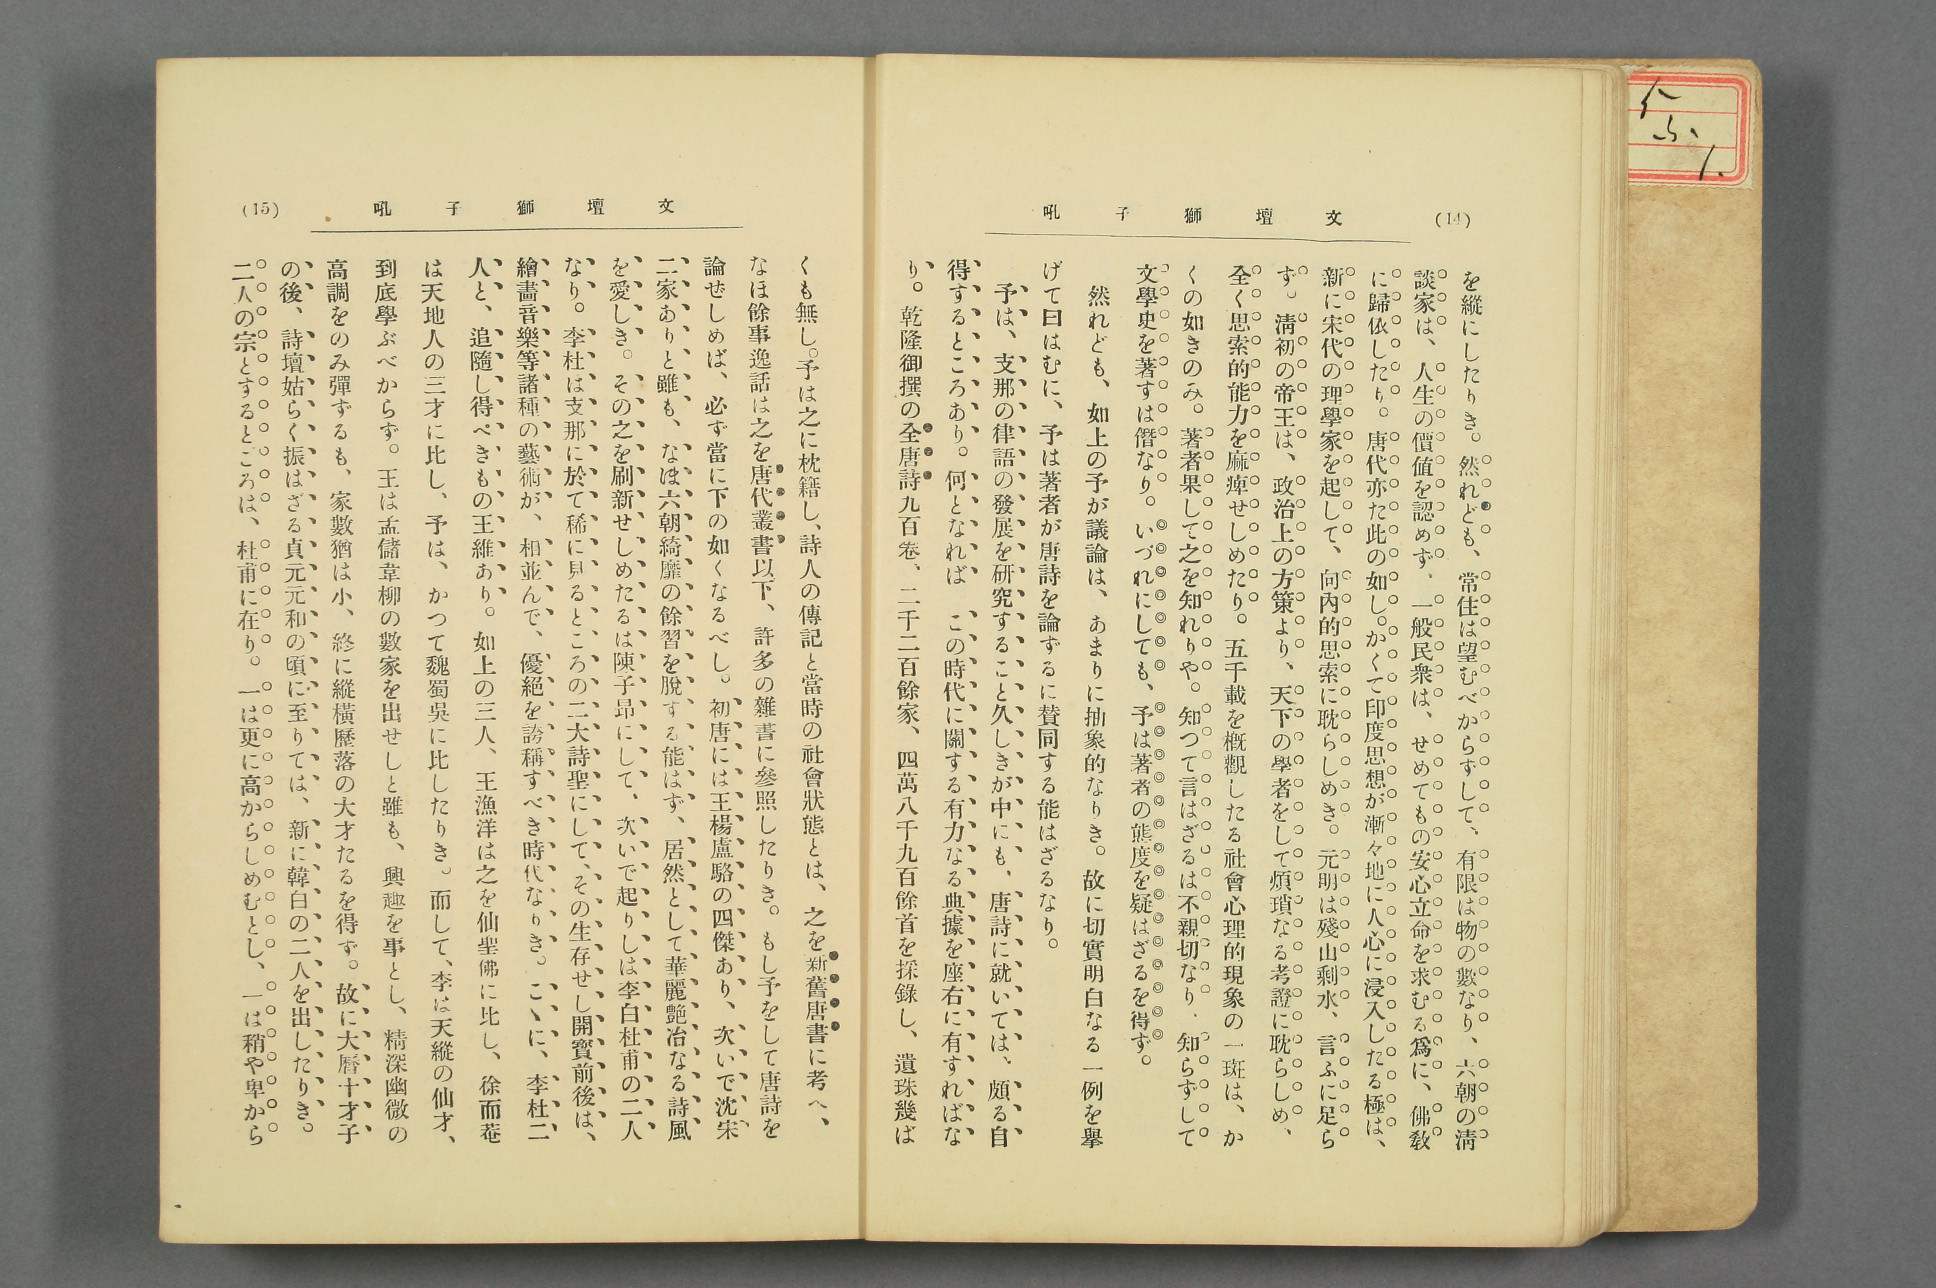 (14)
文壇獅子吼
を縱にしたりき。然れども、常住は望むべからずして、有限は物の數なり、六朝の淸
談家は、人生の價値を認めず、一般民衆は、せめてもの安心立命を求むる爲に、佛敎
に歸依したり。唐代亦た此の如し。かくて印度思想が漸々地に人心に浸入したる極は、
新に宋代の理學家を起して、向內的思索に耽らしめき。元明は殘山剩水、言ふに足ら
ず。淸初の帝王は、政治上の方策より、天下の學者をして煩瑣なる考證に耽らしめ、
全く思索的能力を麻痺せしめたり。五千載を槪觀したる社會心理的現象の一斑は、か
くの如きのみ。著者果して之を知れりや。知つて言はざるは不親切なり、知らずして
文學史を著すは僭なり。いづれにしても、予は著者の態度を疑はざるを得ず。
然れども、如上の予が議論は、あまりに抽象的なりき。故に切實明白なる一例を擧
げて曰はむに、予は著者が唐詩を論ずるに賛同する能はざるなり。
予は、支那の律語の發展を硏究すること久しきが中にも、唐詩に就いては、頗る自
得するところあり。何となれば この時代に關する有力なる典據を座右に有すればな
り。乾隆御撰の全唐詩九百卷、二千二百餘家、四萬八千九百餘首を採錄し、遺珠幾ば
(15)
文壇獅子吼
くも無し。予は之に枕籍し、詩人の傳記と當時の社會狀態とは、之を新舊唐書に考へ、
なほ餘事逸話は之を唐代叢書以下、許多の雜書に參照したりき。もし予をして唐詩を
論ぜしめば、必ず當に下の如くなるべし。初唐には王楊盧駱の四傑あり、次いで沈宋
二家ありと雖も、なほ六朝綺靡の餘習を脫する能はず、居然として華麗艶冶なる詩風
を愛しき。その之を刷新せしめたるは陳子昻にして、次いで起りしは李白杜甫の二人
なり。李杜は支那に於て稀に見るところの二大詩聖にして、その生存せし開寶前後は、
繪畵音樂等諸種の藝術が、相並んで、優絕を誇稱すべき時代なりき。こゝに、李杜二
人と、追隨し得べきもの王維あり。如上の三人、王漁洋は之を仙聖佛に比し、徐而菴
は天地人の三才に比し、予は、かつて魏蜀吳に比したりき。而して、李は天縱の仙才、
到底學ぶべからず。王は孟儲韋柳の數家を出せしと雖も、興趣を事とし、精深幽微の
高調をのみ彈ずるも、家數猶は小、終に縱橫歷落の大才たるを得ず。故に大曆十才子
の後、詩壇姑らく振はざる貞元元和の頃に至りては、新に韓白の二人を出したりき。
二人の宗とするところは、杜甫に在り。一は更に高からしめむとし、一は稍や卑から